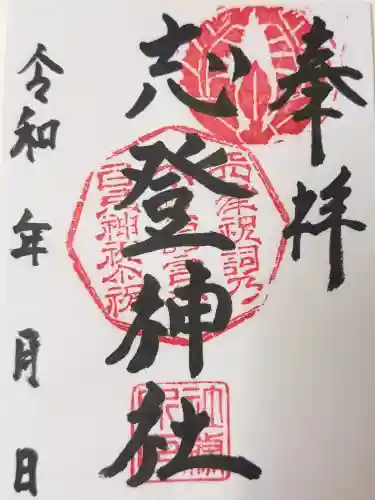 奉拝
志登神社
令和 年 月 日